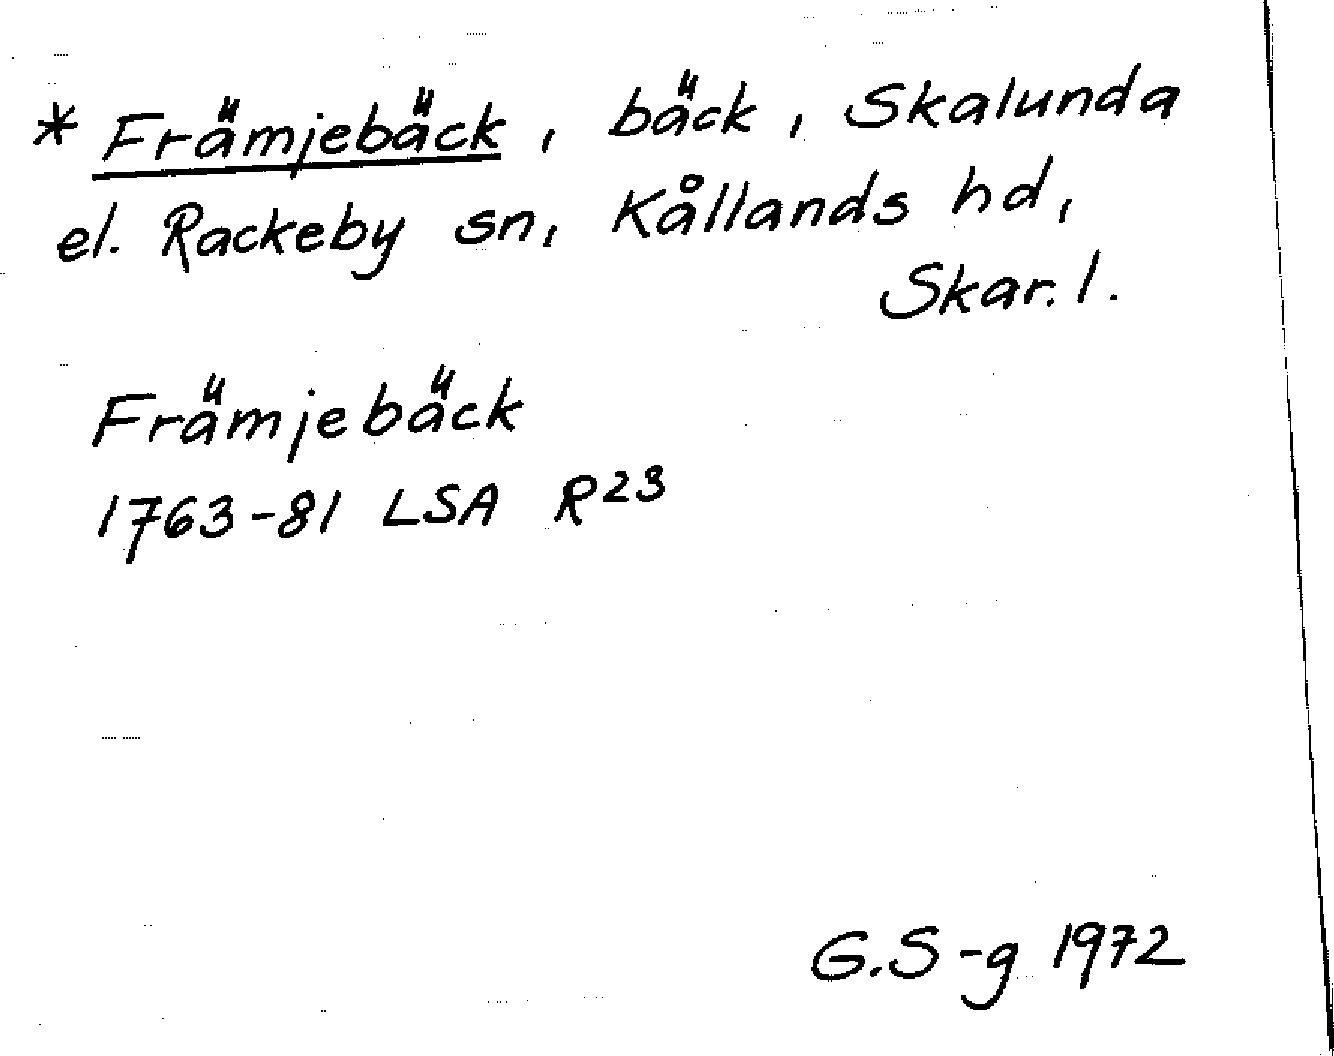 * Främjebäck, bäck, Skalunda
el. Rackeby sn, Kållands hd,
Skar. l.
Främjebäck
1763-81 LSA R23
G.S-g 1972